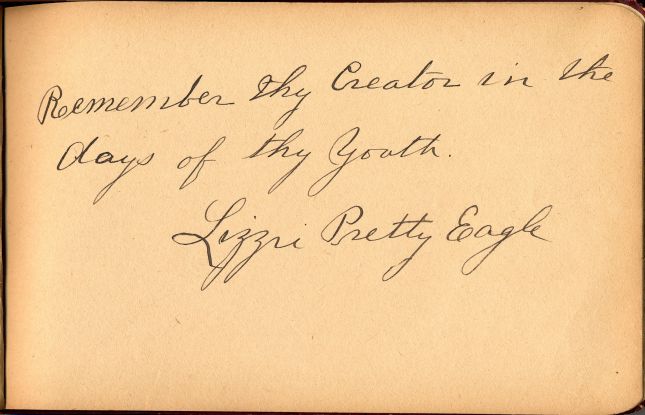 Remember thy Creator in the
days of thy Youth.
Lizzi Pretty Eagle